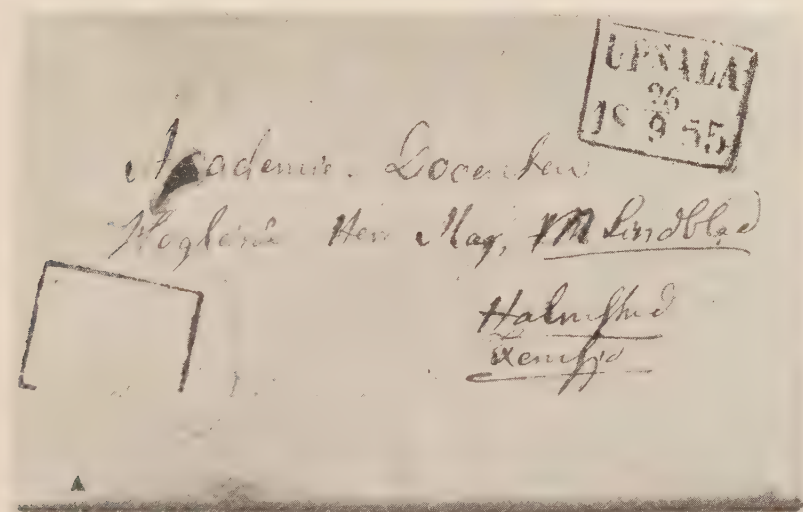 UPSALA
26
18 9 55
Academie. Docenten
Höglärde Herr Mag, M Lindblad
Halmstad